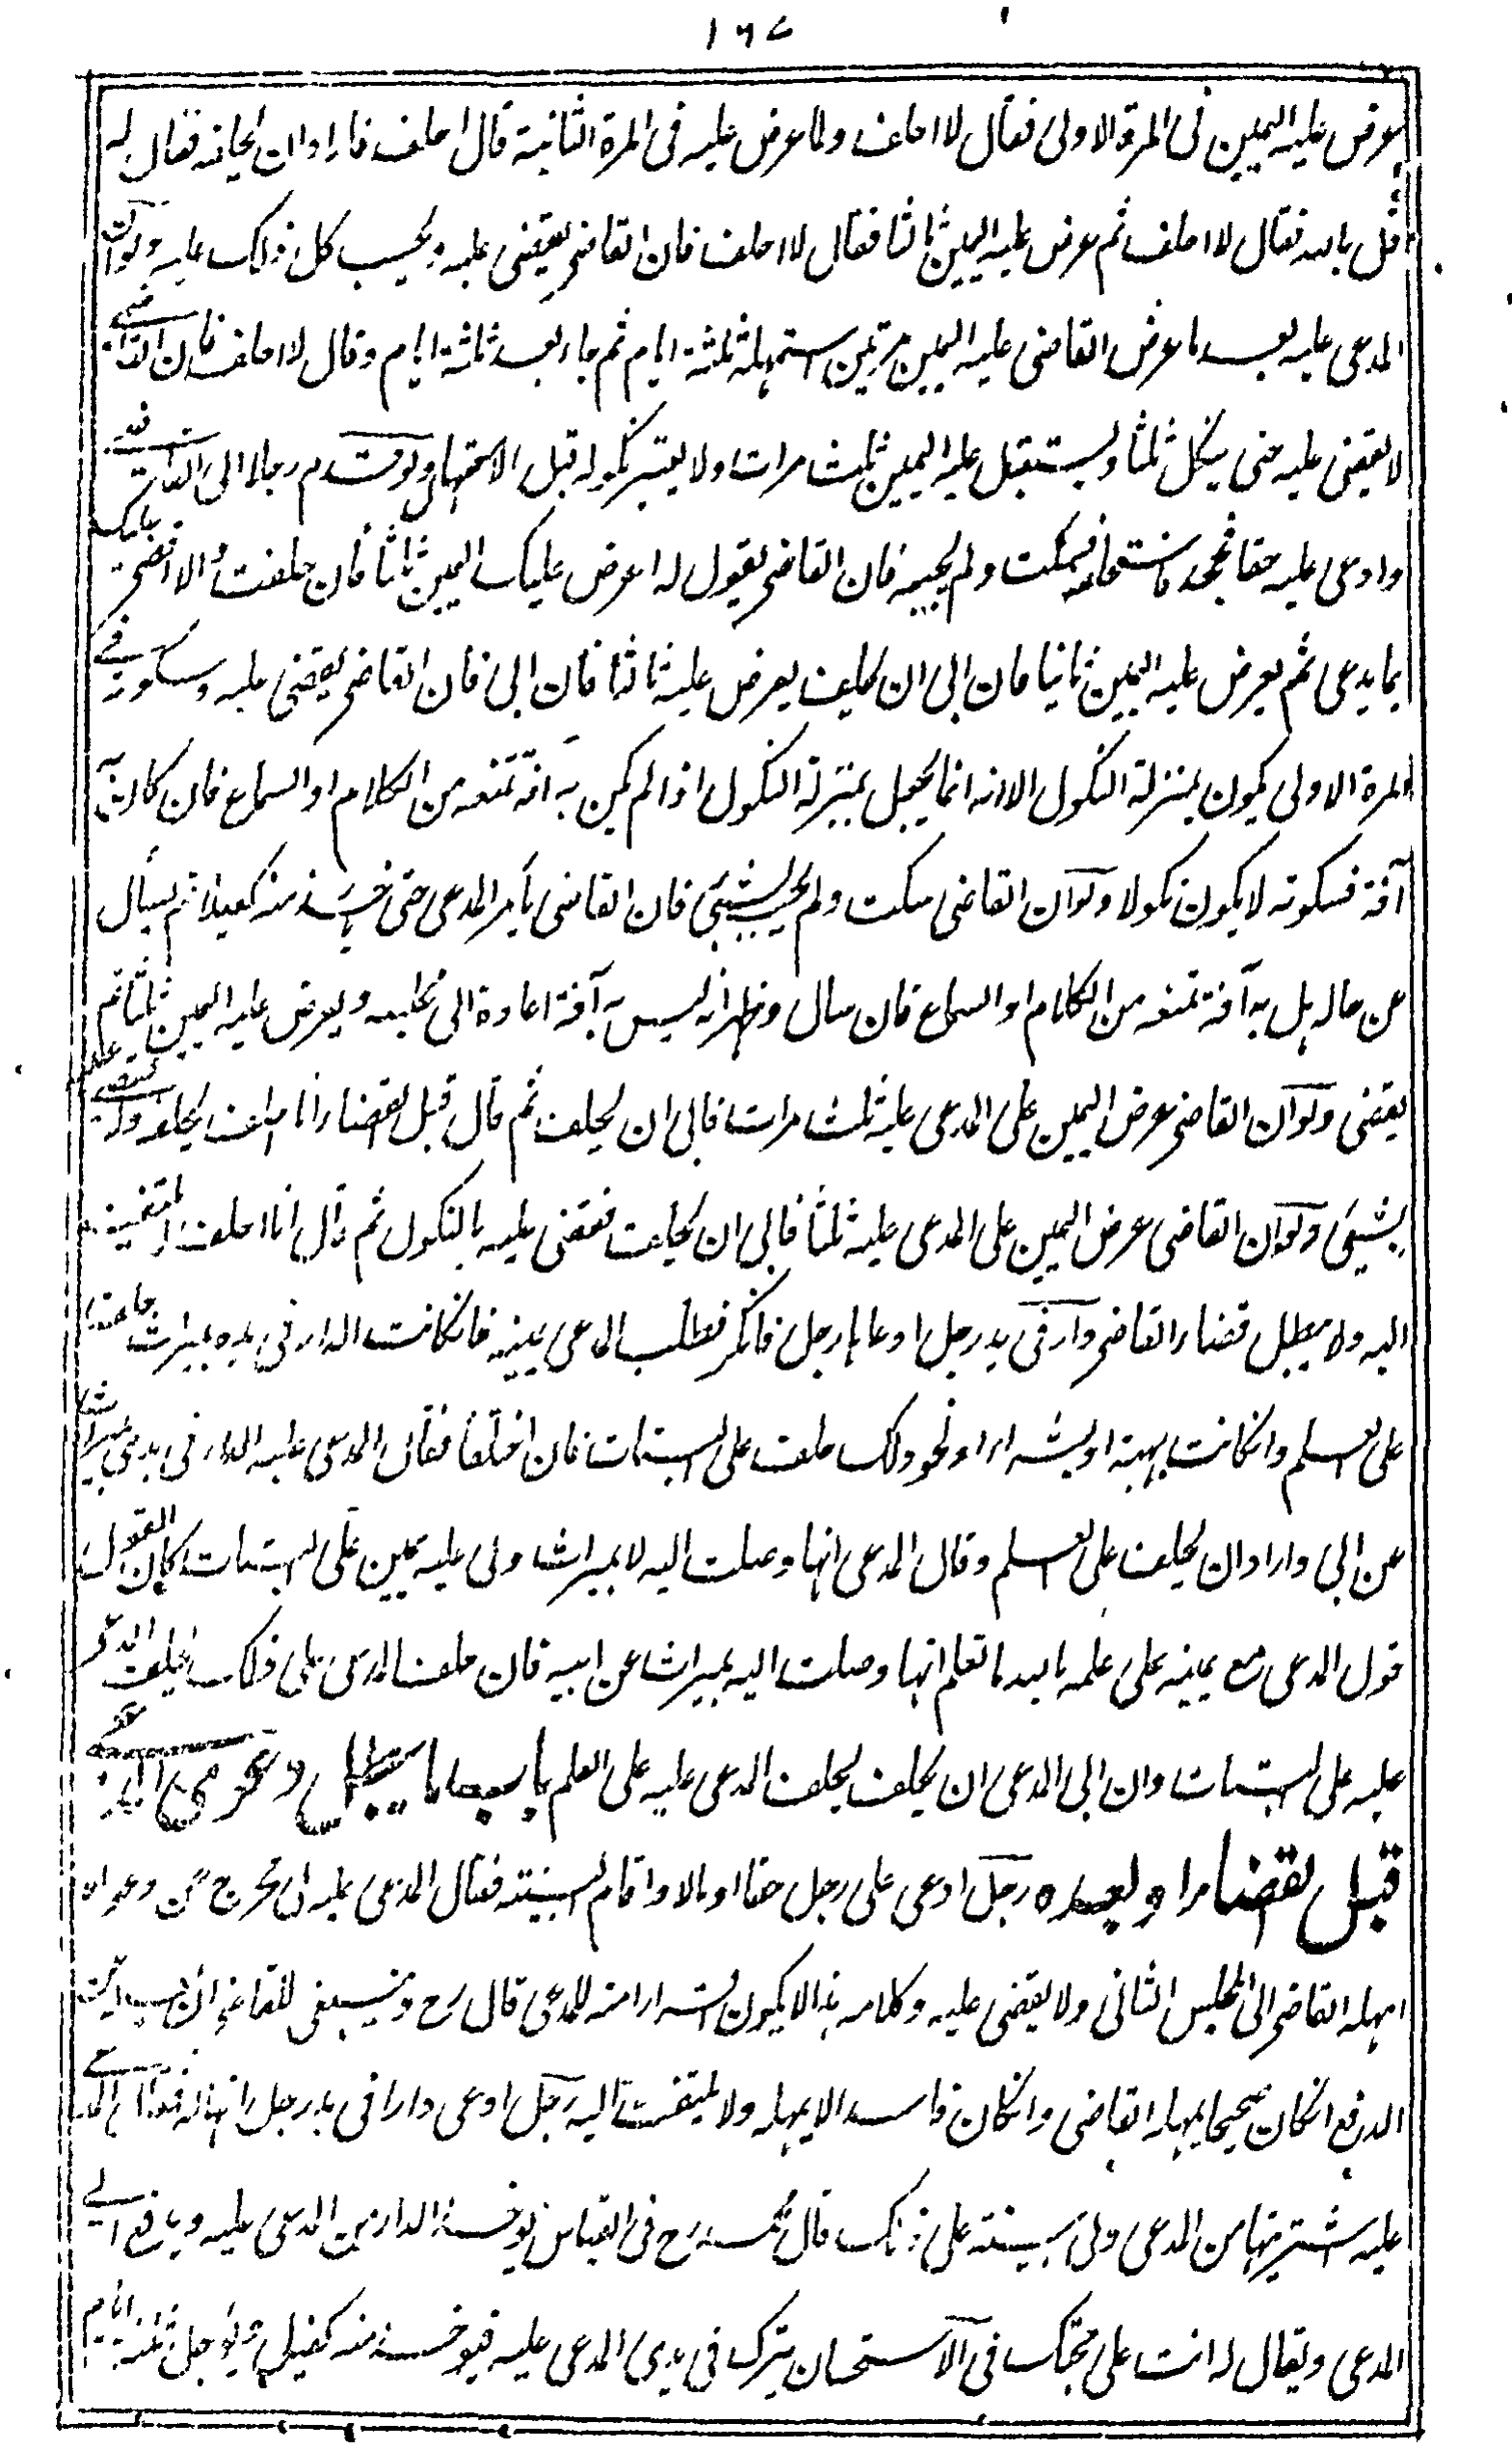 ١٦٧
يعرض عليه اليمين فى المرة الاولى فقال لا احلف ولما عرض عليه فى المرة الثانية قال احلف فاراد ان يحلفه فقال له
قل بالله فقال لا احلف ثم عرض عليه اليمين ثالثا فقال لا احلف فان القاضى يقضى عليه ويحسب كل ذلك عليه ولو ان
المدعى عليه بعد ما عرض القاضى عليه اليمين مرتين استمهله ثلثة ايام ثم جاء بعد ثلثة ايام وقال لا احلف فان القاضى
لا يقضى عليه حتى ينكل ثلثا ويستقبل عليه اليمين ثلث مرات ولا يعتبر نكوله قبل الاستمهال ولو قدم رجلا الى القاضى
وادعى عليه حقا فجحد فاستحلفه فسكت ولم يجبه فان القاضى يقول له اعرض عليك اليمين ثلثا فان حلفت والا اقضى عليك
بما يدعى ثم يعرض عليه اليمين ثانيا فان ابى ان يحلف يعرض عليه ثالثا فان ابى فان القاضى يقضى عليه وسكوته فى
المرة الاولى يكون بمنزلة النكول الا انه انما يجعل بمنزلة النكول اذا لم يكن به آفة تمنعه من الكلام او السماع فان كان به
آفة فسكوته لا يكون نكولا ولو ان القاضى سكت ولم يجب بشيئ فان القاضى يأمر المدعى حتى يأخذ منه كفيلا ثم يسأل
عن حاله هل به آفة تمنعه من الكلام او السماع فان سال وظهر انه ليس به آفة اعاده الى مجلسه ويعرض عليه اليمين ثلثا ثم
يقضى ولو ان القاضى عرض اليمين على المدعى عليه ثلث مرات فابى ان يحلف ثم قال قبل القضاء انا احلف يحلفه ولا يقضى عليه
بشيئ ولو ان القاضى عرض اليمين على المدعى عليه ثلثا فابى ان يحلف فقضى عليه بالنكول ثم قال انا احلف لا يلتفت
اليه ولا يبطل قضاء القاضى دار فى يد رجل ادعاها رجل فانكر فطلب المدعى يمينه فان كانت الدار فى يده بميراث حلف
على العلم وان كانت بهبة او بشراء او نحو ذلك حلف على البتات فان اختلفا فقال المدعى عليه الدار فى يدى ميراثا
عن ابى واراد ان يحلف على العلم وقال المدعى انها وصلت اليه لا بميراث ولى عليه يمين على البتات كان القول
قول المدعى مع يمينه على علمه بالله ما تعلم انها وصلت اليه بميراث عن ابيه فان حلف المدعى على ذلك يحلف المدعى
عليه على البتات وان ابى المدعى ان يحلف يحلف المدعى عليه على العلم باب ما يبطل دعوى المدعى
قبل القضاء او بعده رجل ادعى على رجل حقا او مالا واقام البينة فقال المدعى عليه لى مخرج عن دعواه
امهله القاضى الى المجلس الثانى ولا يقضى عليه وكلامه هذا لا يكون اقرارا منه للمدعى قال رح وينبغى للقاضى ان يسأله عن
الدفع ان كان صحيحا يمهله القاضى وان كان فاسدا لا يمهله ولا يلتفت اليه رجل ادعى دارا فى يد رجل انها له فقال المدعى
عليه اشتريتها من المدعى ولى بينة على ذلك قال محمد رح فى القياس يؤخذ الدار من المدعى عليه ويدفع الى
المدعى ويقال له انت على حجتك فى الاستحسان يترك فى يدى المدعى عليه فيؤخذ منه كفيل ويؤجل ثلثة ايام